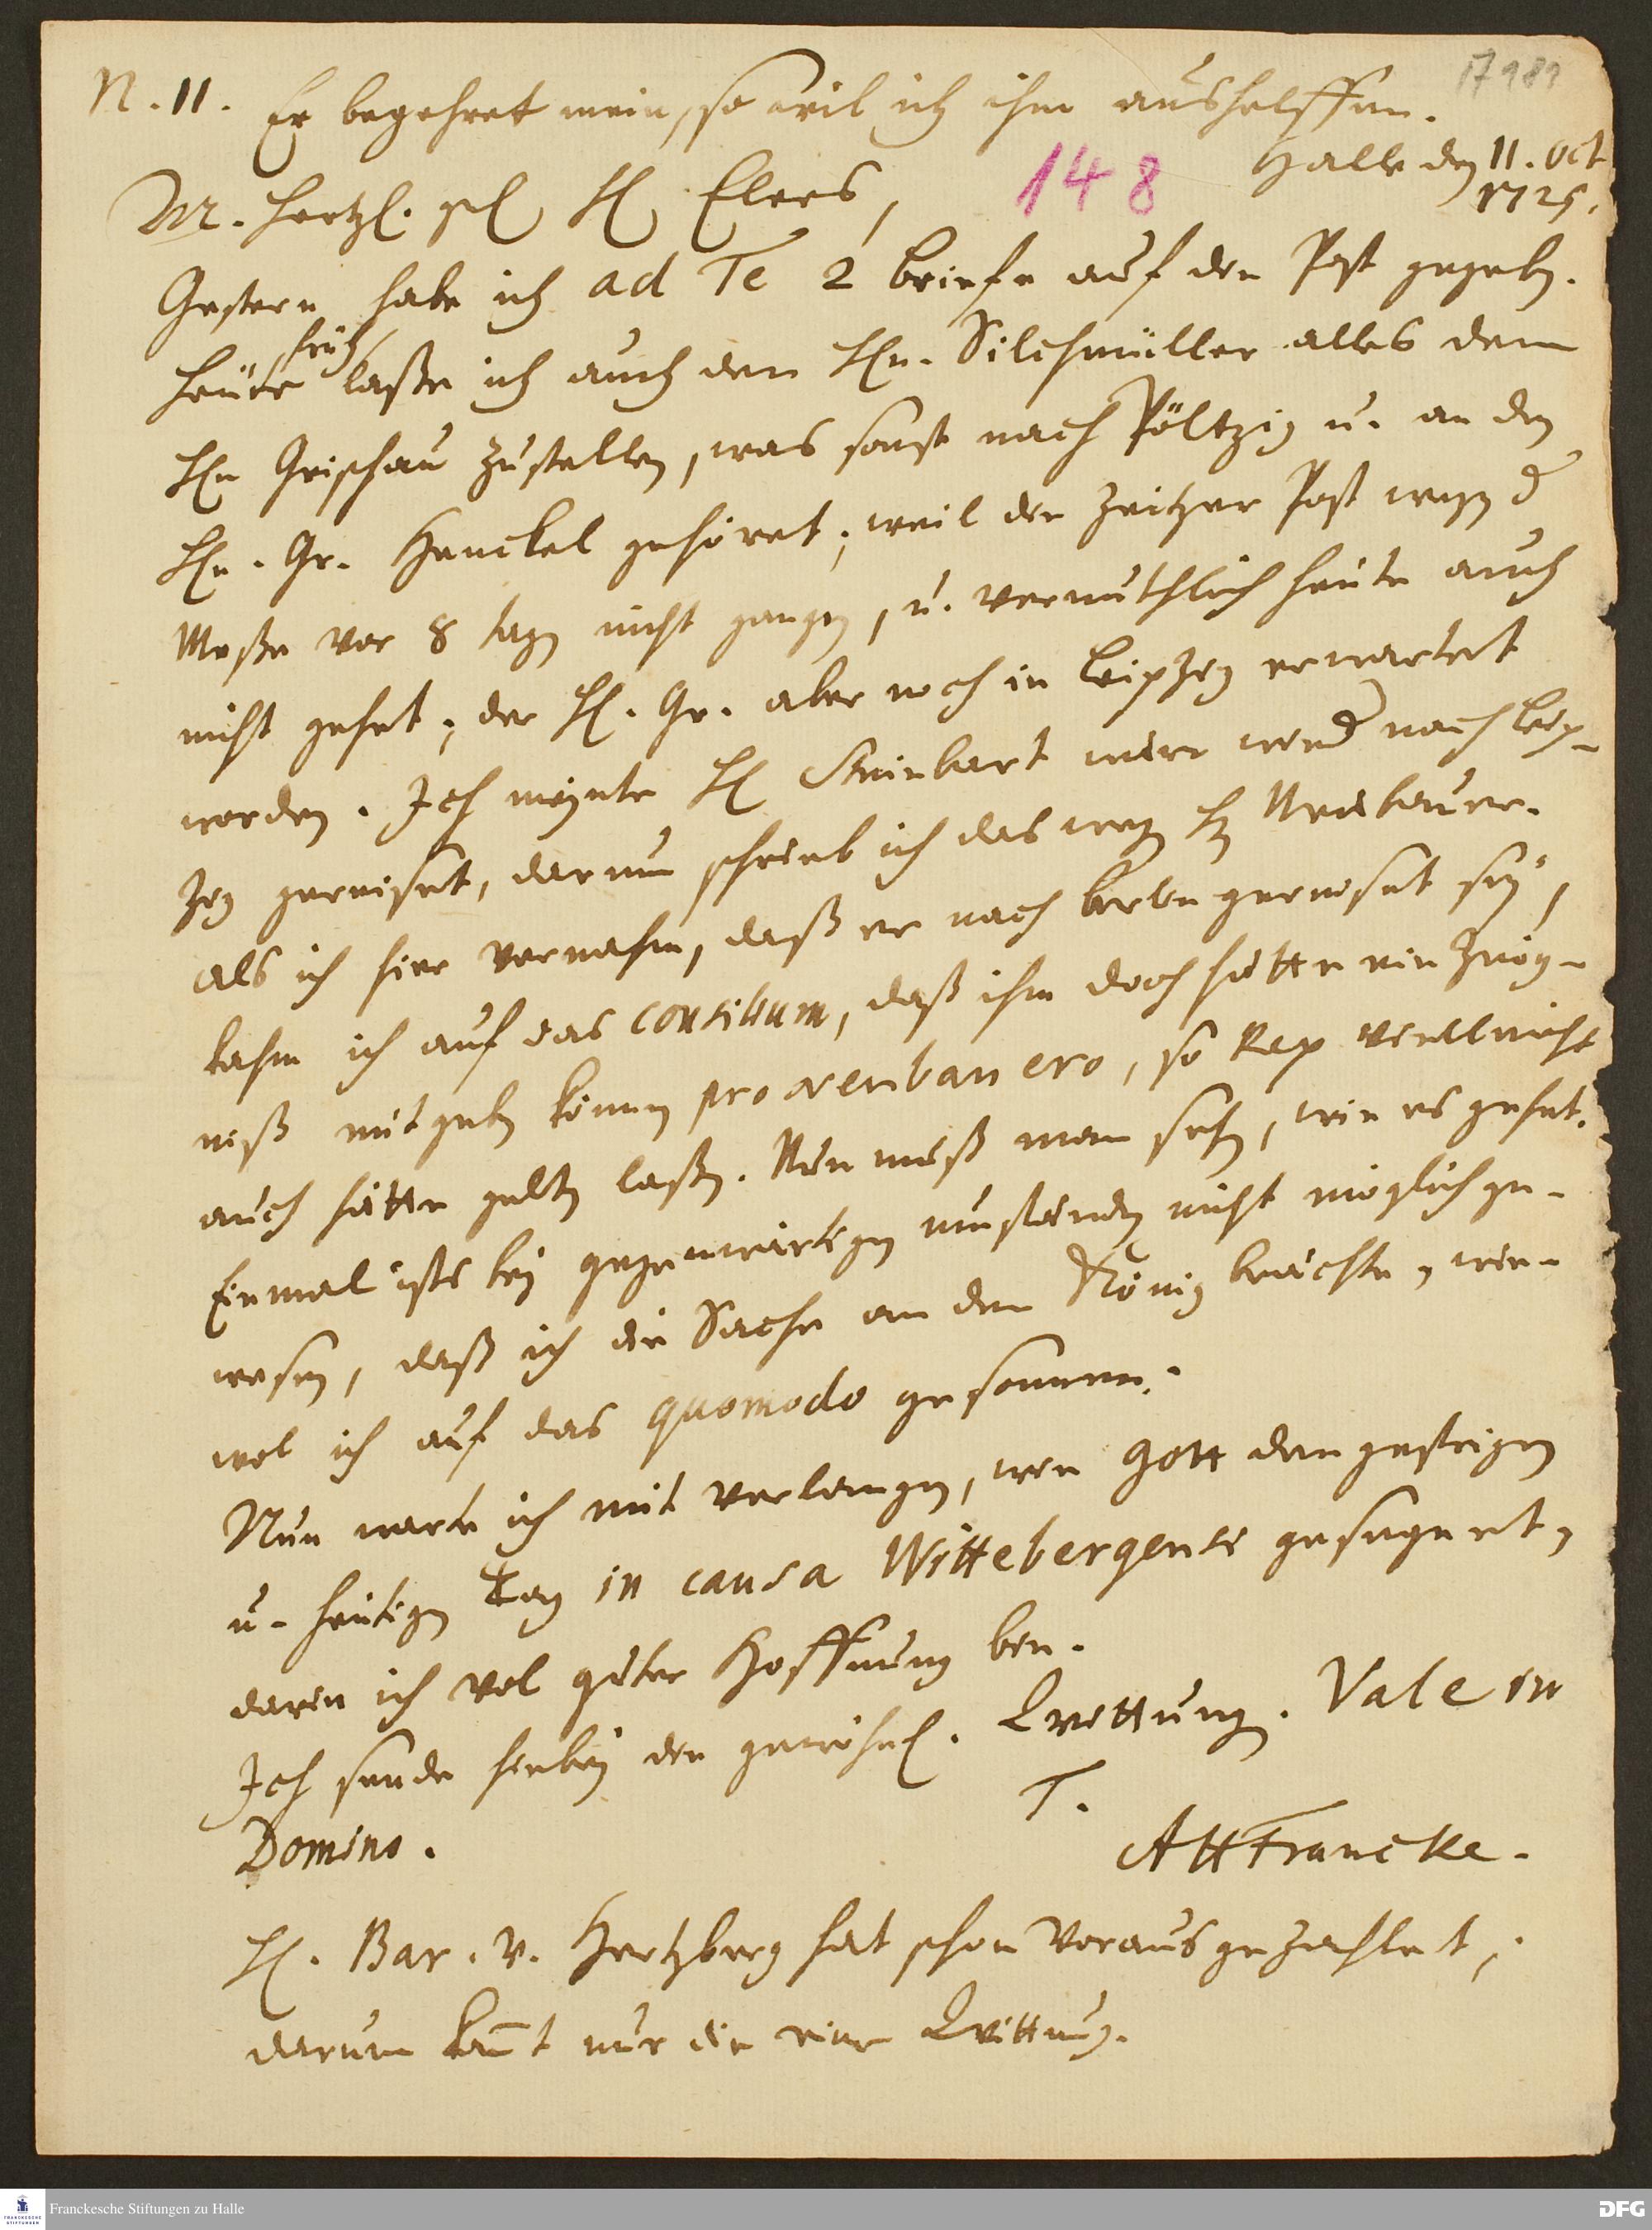 17989
N. 11. Er begehret mein, so wil ich ihm aushelffen.
Halle den 11. Oct
1725.
148
M. hertzl. gel. H. Elers,
Gestern habe ich ad Te 2 briefe auf die Post gegeben.
früh
heute laße ich auch den Hn. Silchmüller alles dem
Hn Grischau zustellen, was sonst nach Pöltzig u. an den
Hn. Gr. Henckel gehöret; weil die Zeitzer Post wegen d
Meße vor 8 tagen nicht gangen, u. vermuthlich heute auch
nicht gehet; der H. Gr. aber noch in Leipzig erwartet
worden. Ich meynte H Steinbart wäre wied nach Leip-
zig gereiset, darum schrieb ich das wegen H Neubauer.
als ich hier vernahm, daß er nach Berlin gereiset sey,
kahm ich auf das consilium, daß ihm doch hätte ein Zeug-
niß mitgeben können pro Neubauero, so Rex vielleicht
auch hätte gelten laßen. Nun muß man sehen, wie es gehet.
Einmal ists bey gegenwärtigen umständen nicht möglich ge-
wesen, daß ich die Sache an den König brächte, wie-
wol ich auf das quomodo gesonnen.
Nun warte ich mit verlangen, wie Gott den gestrigen
u. heutigen Tag in causa Wittebergensi gesegnet,
darin ich vol guter Hoffnung bin.
Ich sende hiebey die gewöhnl. Qvittung. Vale in
Domino.
T.
AHFrancke.
H. Bar. v. Hertzberg hat schon voraus gezahlet,
darum komt nur die eine Qvittung.
Franckesche Stiftungen zu Halle
FRANCKESCHE
STIFTUNGEN
DFG